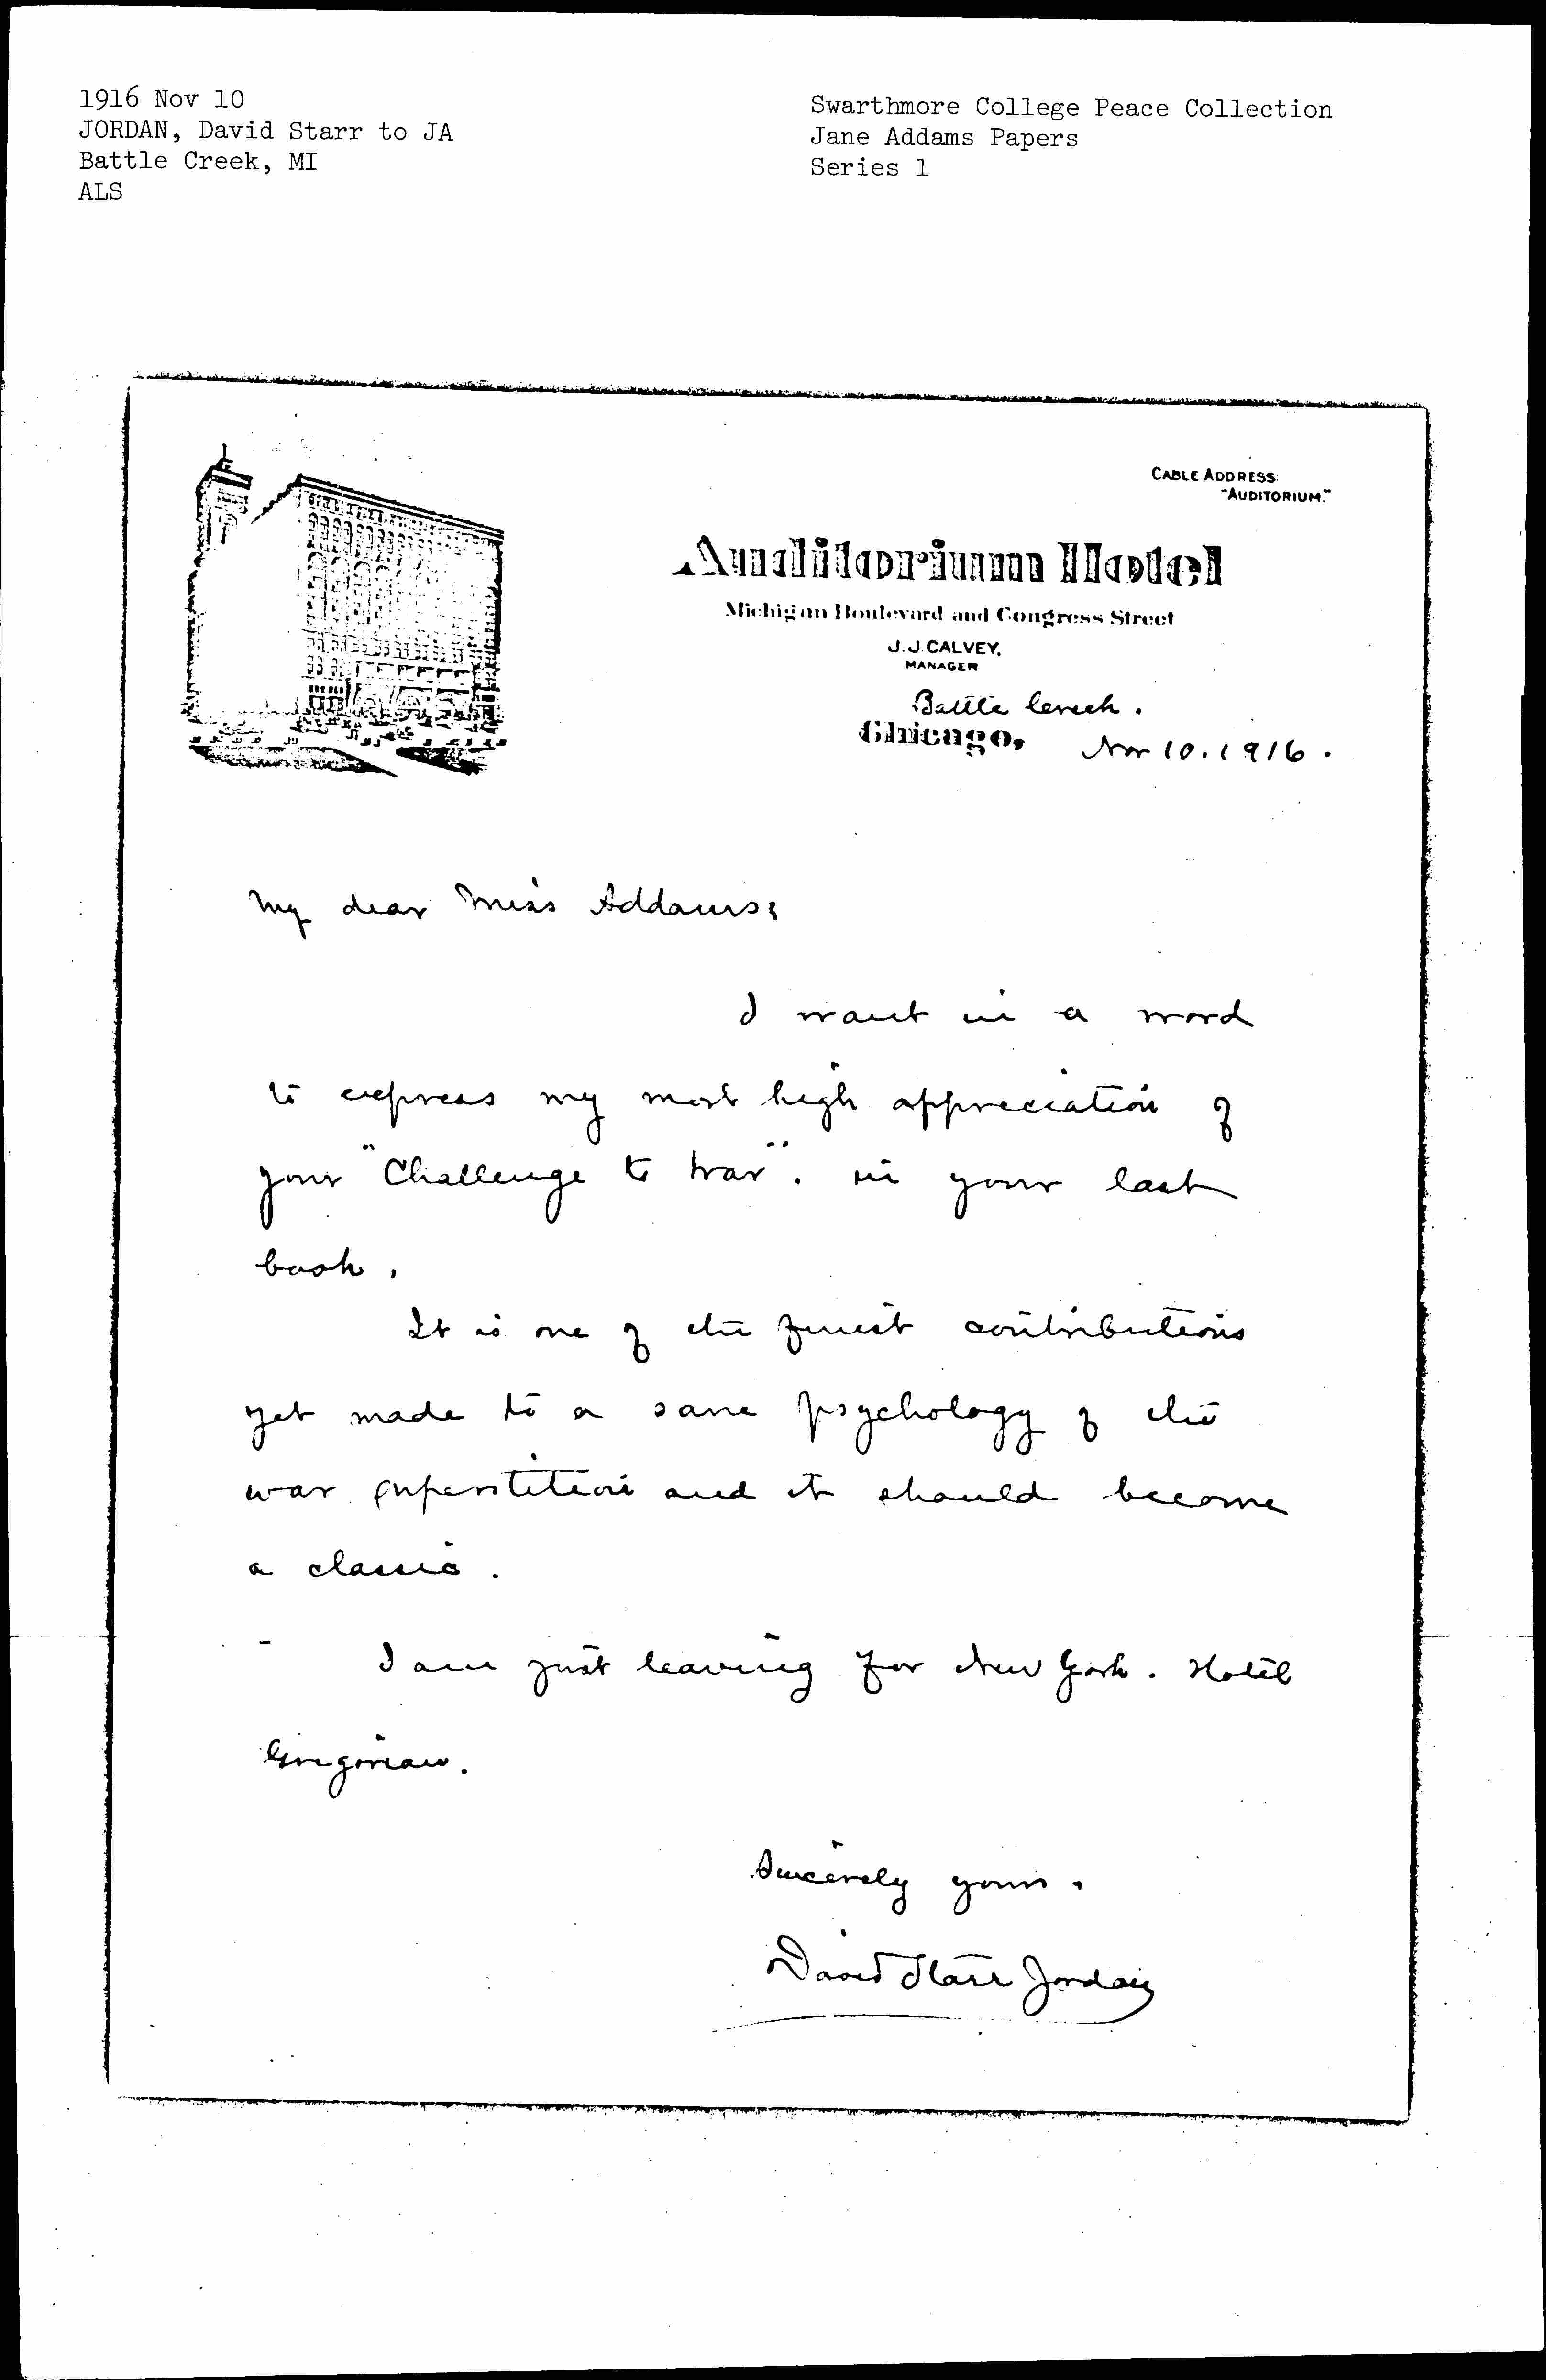 1916 Nov 10
JORDAN, David Starr to JA
Battle Creek, MI
ALS
Swarthmore College Peace Collection
Jane Addams Papers
Series 1
CABLE ADDRESS:
"AUDITORIUM."
Auditorium Hotel
Michigan Boulevard and Congress Street
J. J. CALVEY,
MANAGER
Battle Creek.
Chicago, Nov 10. 1916.
My dear Miss Addams:
I want in a word
to express my most high appreciation of
your "Challenge to War". in your last
book.
It is one of the finest contributions
yet made to a sane psychology of the
war superstition and it should become
a classic.
I am just leaving for New York. Hotel
Gregorian.
Sincerely yours.
David Starr Jordan